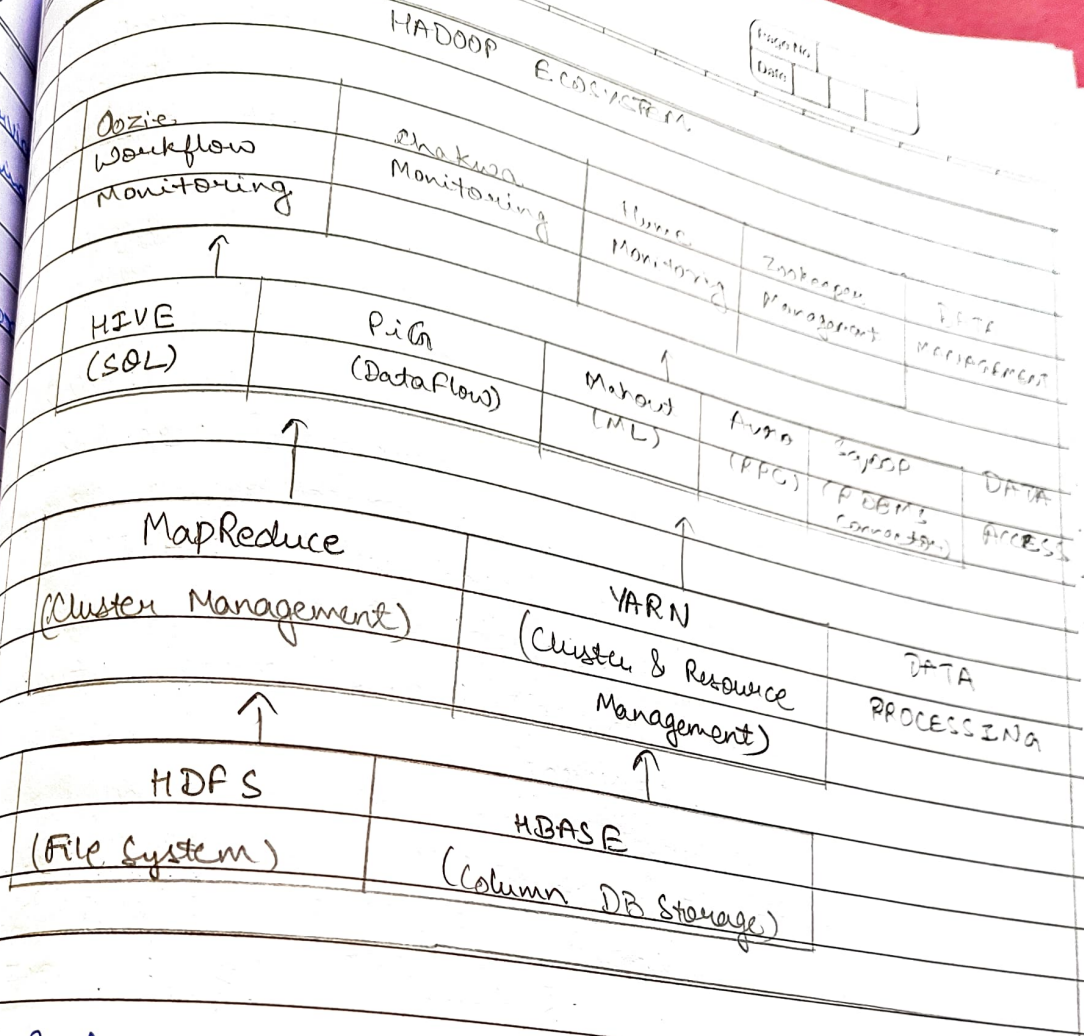 Page No
Date
HADOOP ECOSYSTEM
Oozie
Workflow
Monitoring
Chakwa
Monitoring
Flume
Monitoring
Zookeeper
Management
DATA
MANAGEMENT
HIVE
(SQL)
PiG
(DataFlow)
Mahout
(ML)
Avro
(RPC)
Sqoop
(RDBMS
Connector)
DATA
ACCESS
MapReduce
(Cluster Management)
YARN
(Cluster & Resource
Management)
DATA
PROCESSING
HDFS
(File System)
HBASE
(Column DB Storage)